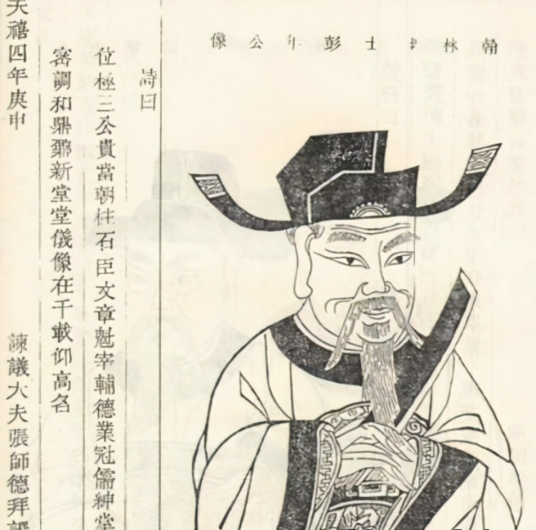 翰林 士彭年公像
詩曰
位極三公貴當朝柱石臣文章魁宰輔德業冠儒紳堂
密調和鼎鼐新堂堂儀像在千載仰高名
天禧四年庚申 諫議大夫張師德拜